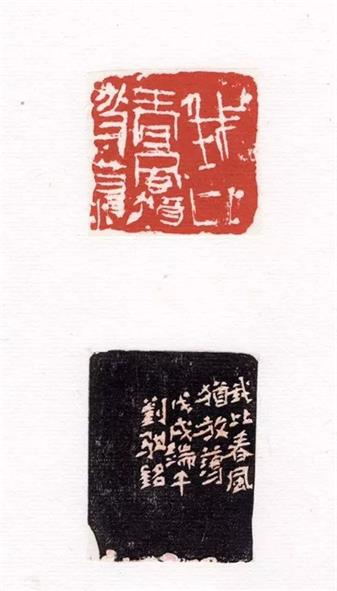 我比
春風
猶放蕩
我比春風
猶放蕩
戊戌端午
劉 銘